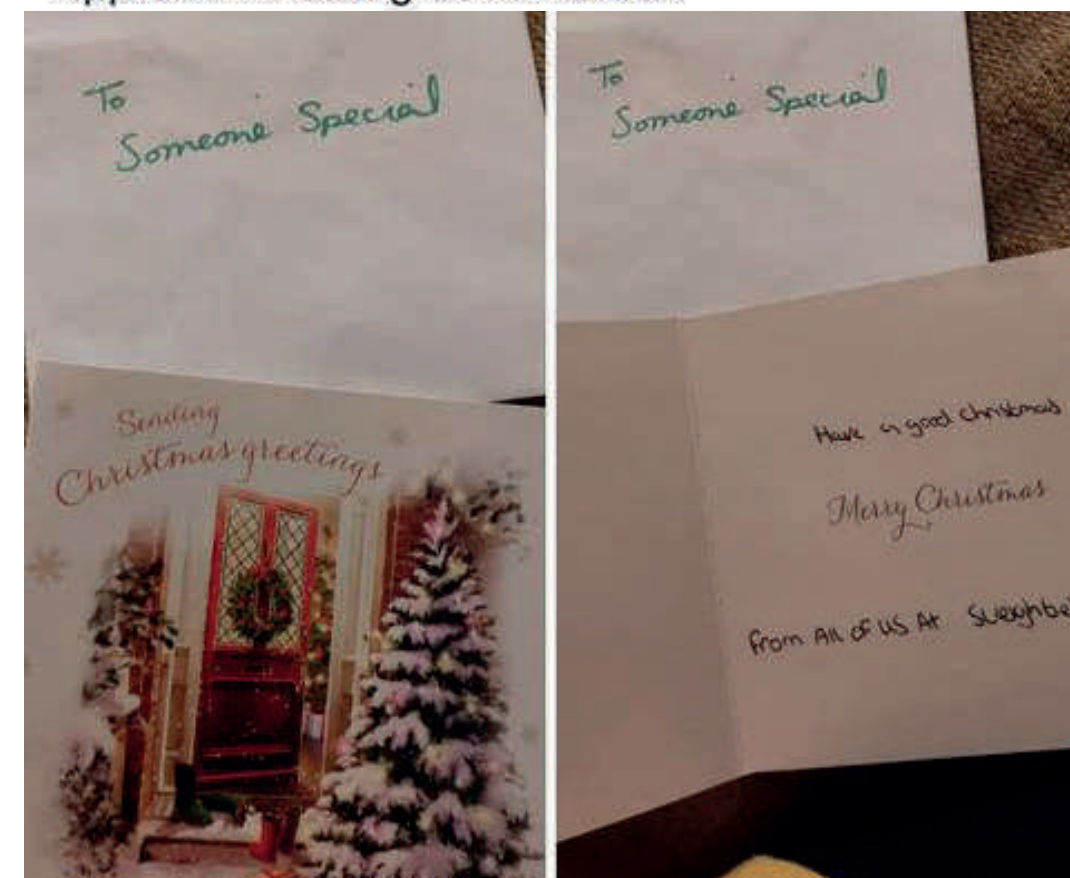 To
Someone Special
Sending
Christmas greetings
To
Someone Special
Have a good christmas
Merry Christmas
From All of US At